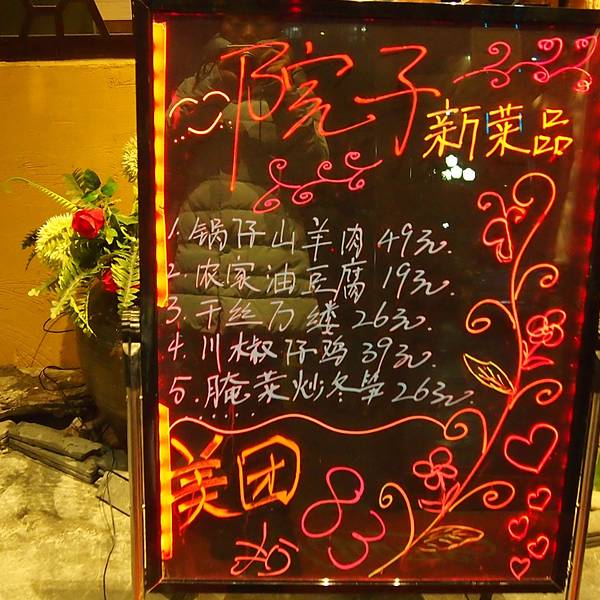 院子
新菜品
1. 锅仔山羊肉 49元.
2. 农家油豆腐 19元.
3. 千丝万缕 26元.
4. 川椒仔鸡 39元.
5. 腌菜炒冬笋 263元.
美团
83